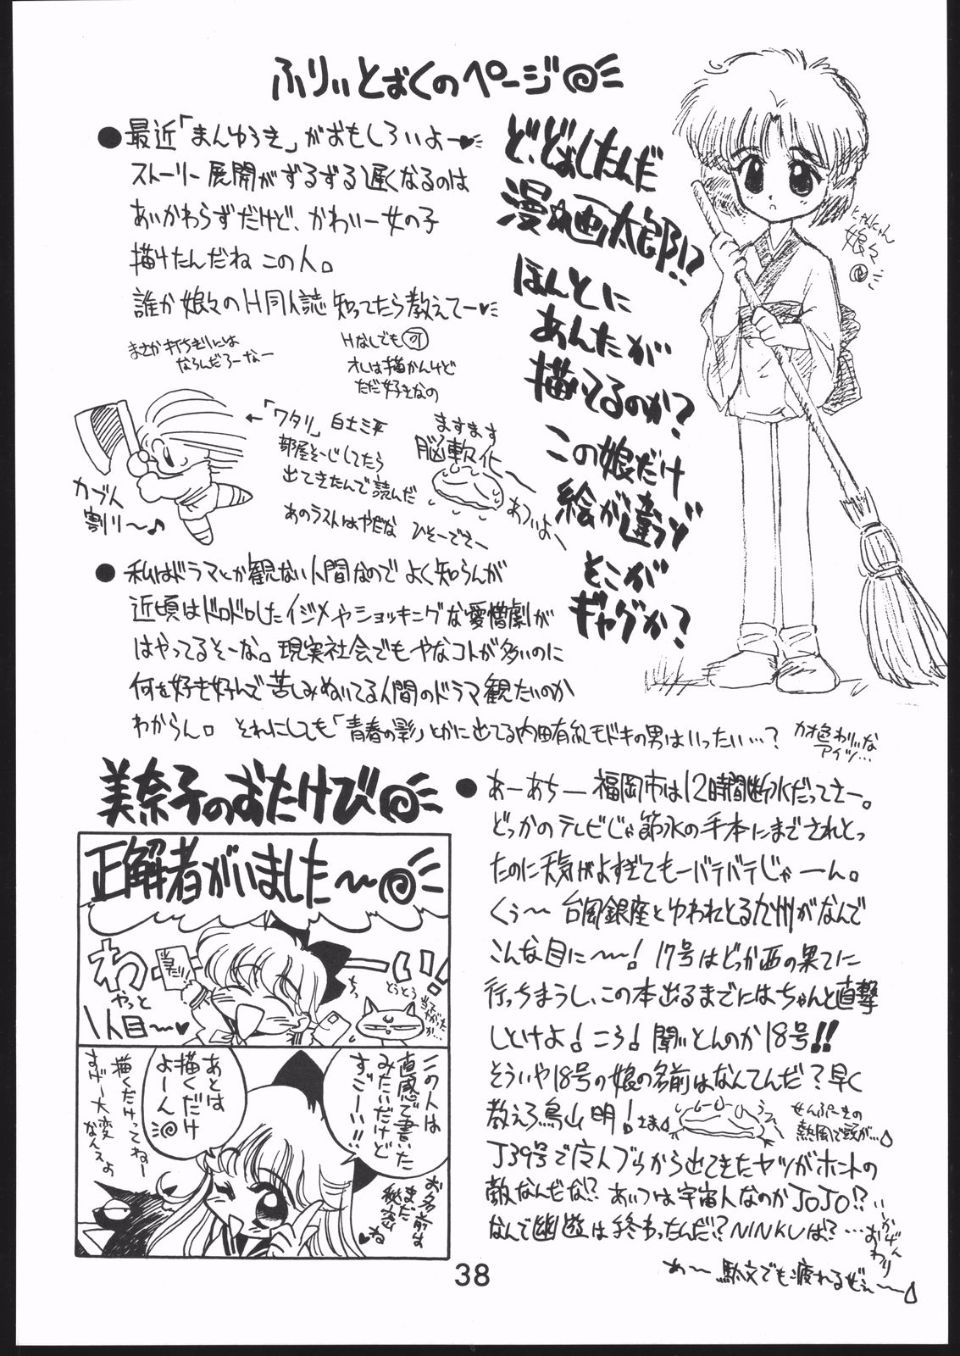 ふりぃとぉくのページ
●最近「まんゆうき」がおもしろいよー♥
ストーリー展開がずるずる遅くなるのは
あいかわらずだけど、かわいー女の子
描けたんだね この人。
誰か娘々のH同人誌知ってたら教えてー♥
まさか打ちきりには
ならんだろーなー
Hなしでも可
オレは描かんけど
ただ好きなの
ど、どおしたんだ
漫☆画太郎!?
ほんとに
あんたが
描いてるのか?
この娘だけ
絵が違うぞ
どこが
ギャグか?
娘々
←「ワタリ」白土三平
部屋そーじしてたら
出てきたんで読んだ
あのラストはやだな ひそーでさー
カブト
割り〜♪
ますます
脳軟化〜
あついよ〜
●私はドラマとか観ない人間なのでよく知らんが
近頃はドロドロしたイジメやショッキングな愛憎劇が
はやってるそーな。現実社会でもやなコトが多いのに
何を好き好んで苦しみぬいてる人間のドラマ観たいのか
わからん。それにしても「青春の影」とかに出てる内田有紀モドキの男はいったい…?
カオ色わりぃな
アイツ…
美奈子のおたけび
正解者がいました〜
わーーい!
当たり!
やっと
1人目〜♥
とうとう
この人は
直感で書いた
みたいだけど
すご〜い!!
あとは
描くだけ
よーん
描くだけってねー
すげー大変
なんよぉ
お名前は
まだ
秘密
♥ね
●あーあちー 福岡市は12時間断水だってさー。
どっかのテレビじゃ節水の手本にまでされとっ
たのに天気がよすぎてもーバテバテじゃーん。
くぅ〜 台風銀座とゆわれとる九州がなんで
こんな目に〜〜! 17号はどっか西の果てに
行っちまうし、この本出るまでにはちゃんと直撃
しとけよ! ころ! 聞いとんのか18号!!
そういや18号の娘の名前はなんてんだ?早く
教えろ鳥山明!さま
せんぷーきの
熱風で蚊が…
J39号で魔人ブウから出てきたヤツがホントの
敵なんだな!? あいつは宇宙人なのかJOJO!?
なんで幽遊は終わったんだ!? NINKUは?…
かぜん
おわり
あ〜 駄文でも疲れるぜぇ〜
38